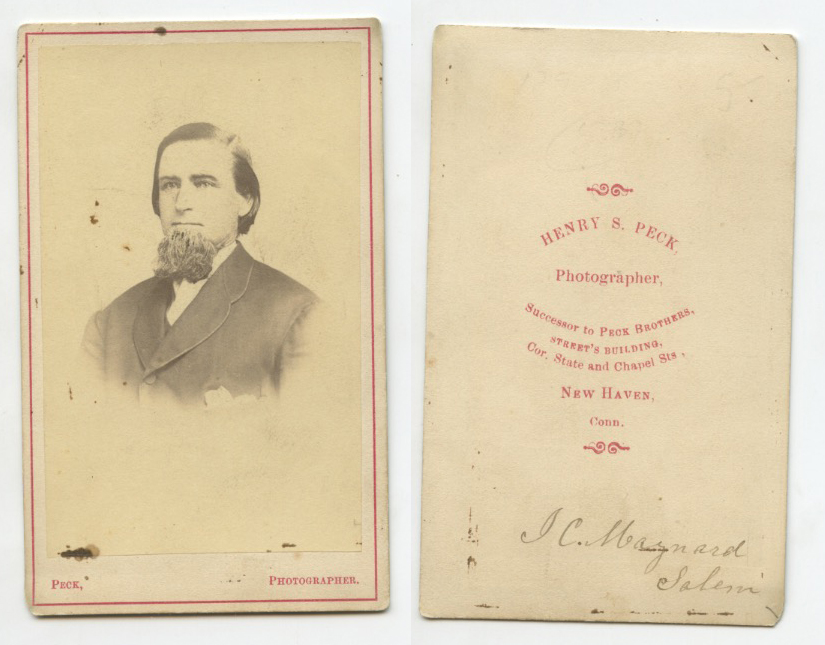 PECK,
PHOTOGRAPHER.
HENRY S. PECK,
Photographer,
Successor to PECK BROTHERS,
STREET'S BUILDING,
Cor. State and Chapel Sts,
NEW HAVEN,
Conn.
J C. Maynard
Salem